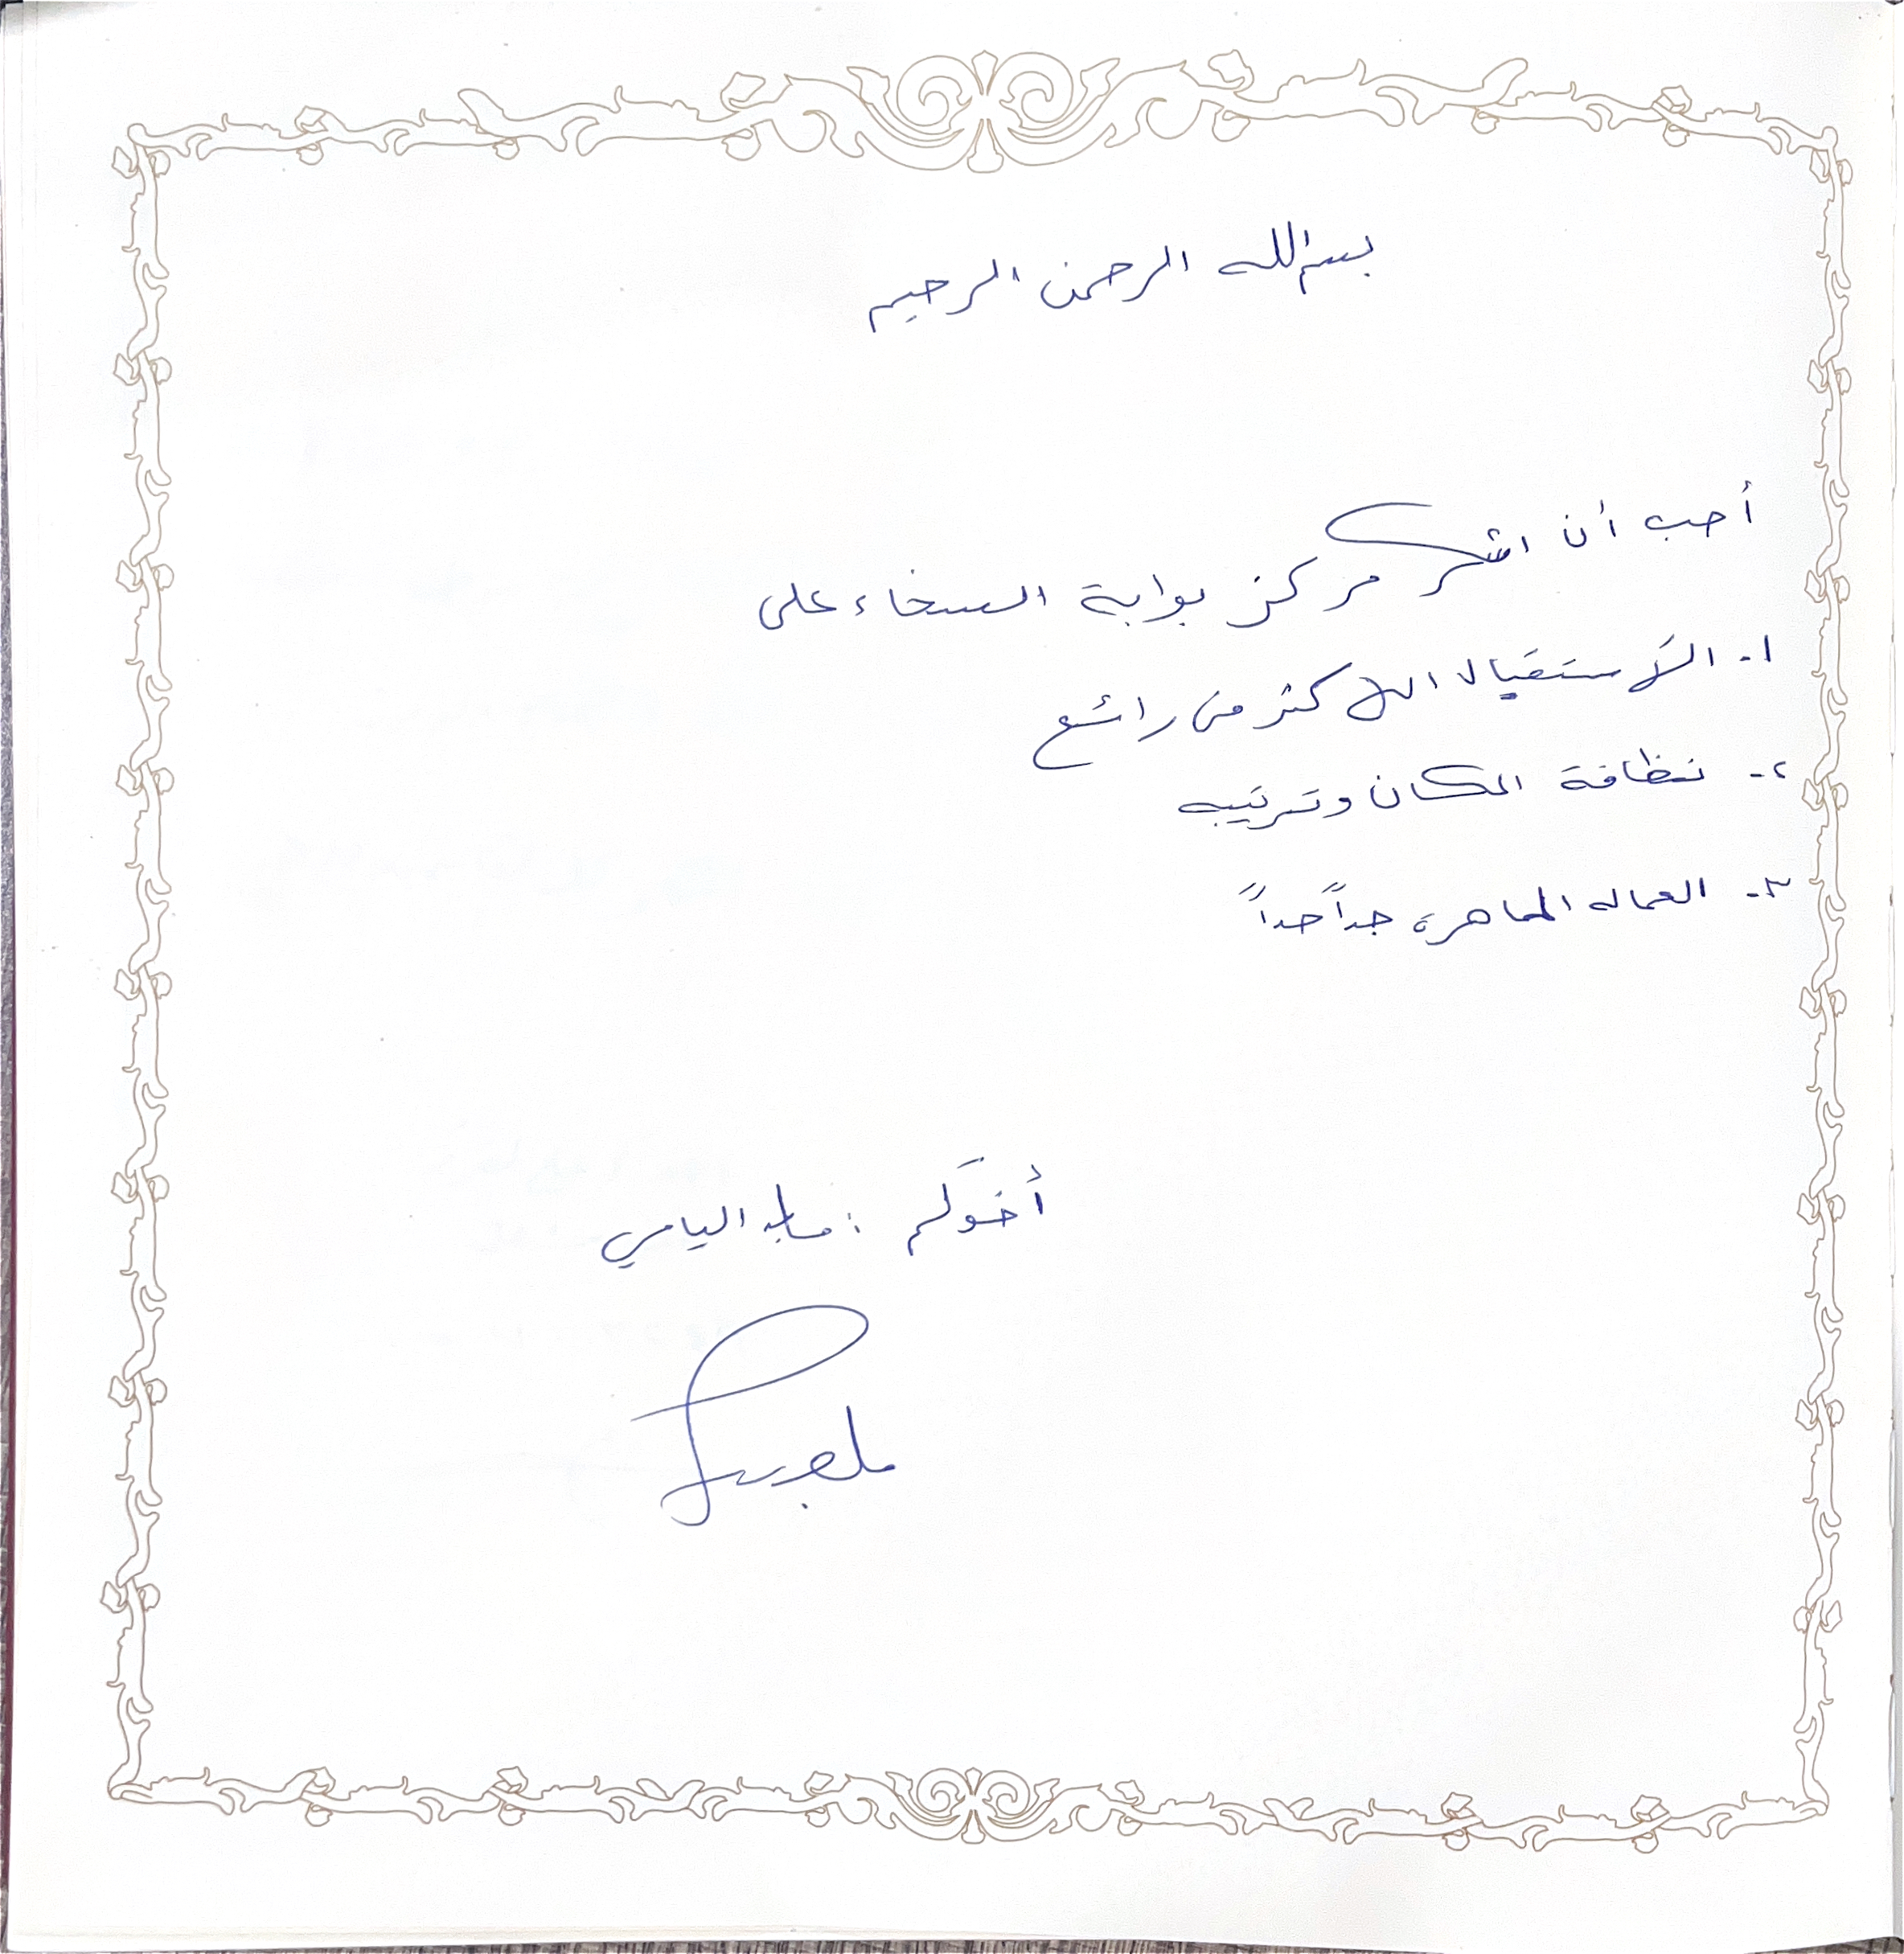 بسم الله الرحمن الرحيم
أحب أن اشكر مركز بوابة السخاء على
١- الاستقبال الاكثر من رائع
٢- نظافة المكان وترتيبه
٣- العماله الماهرة جداً جداً
أخوكم : اليامي